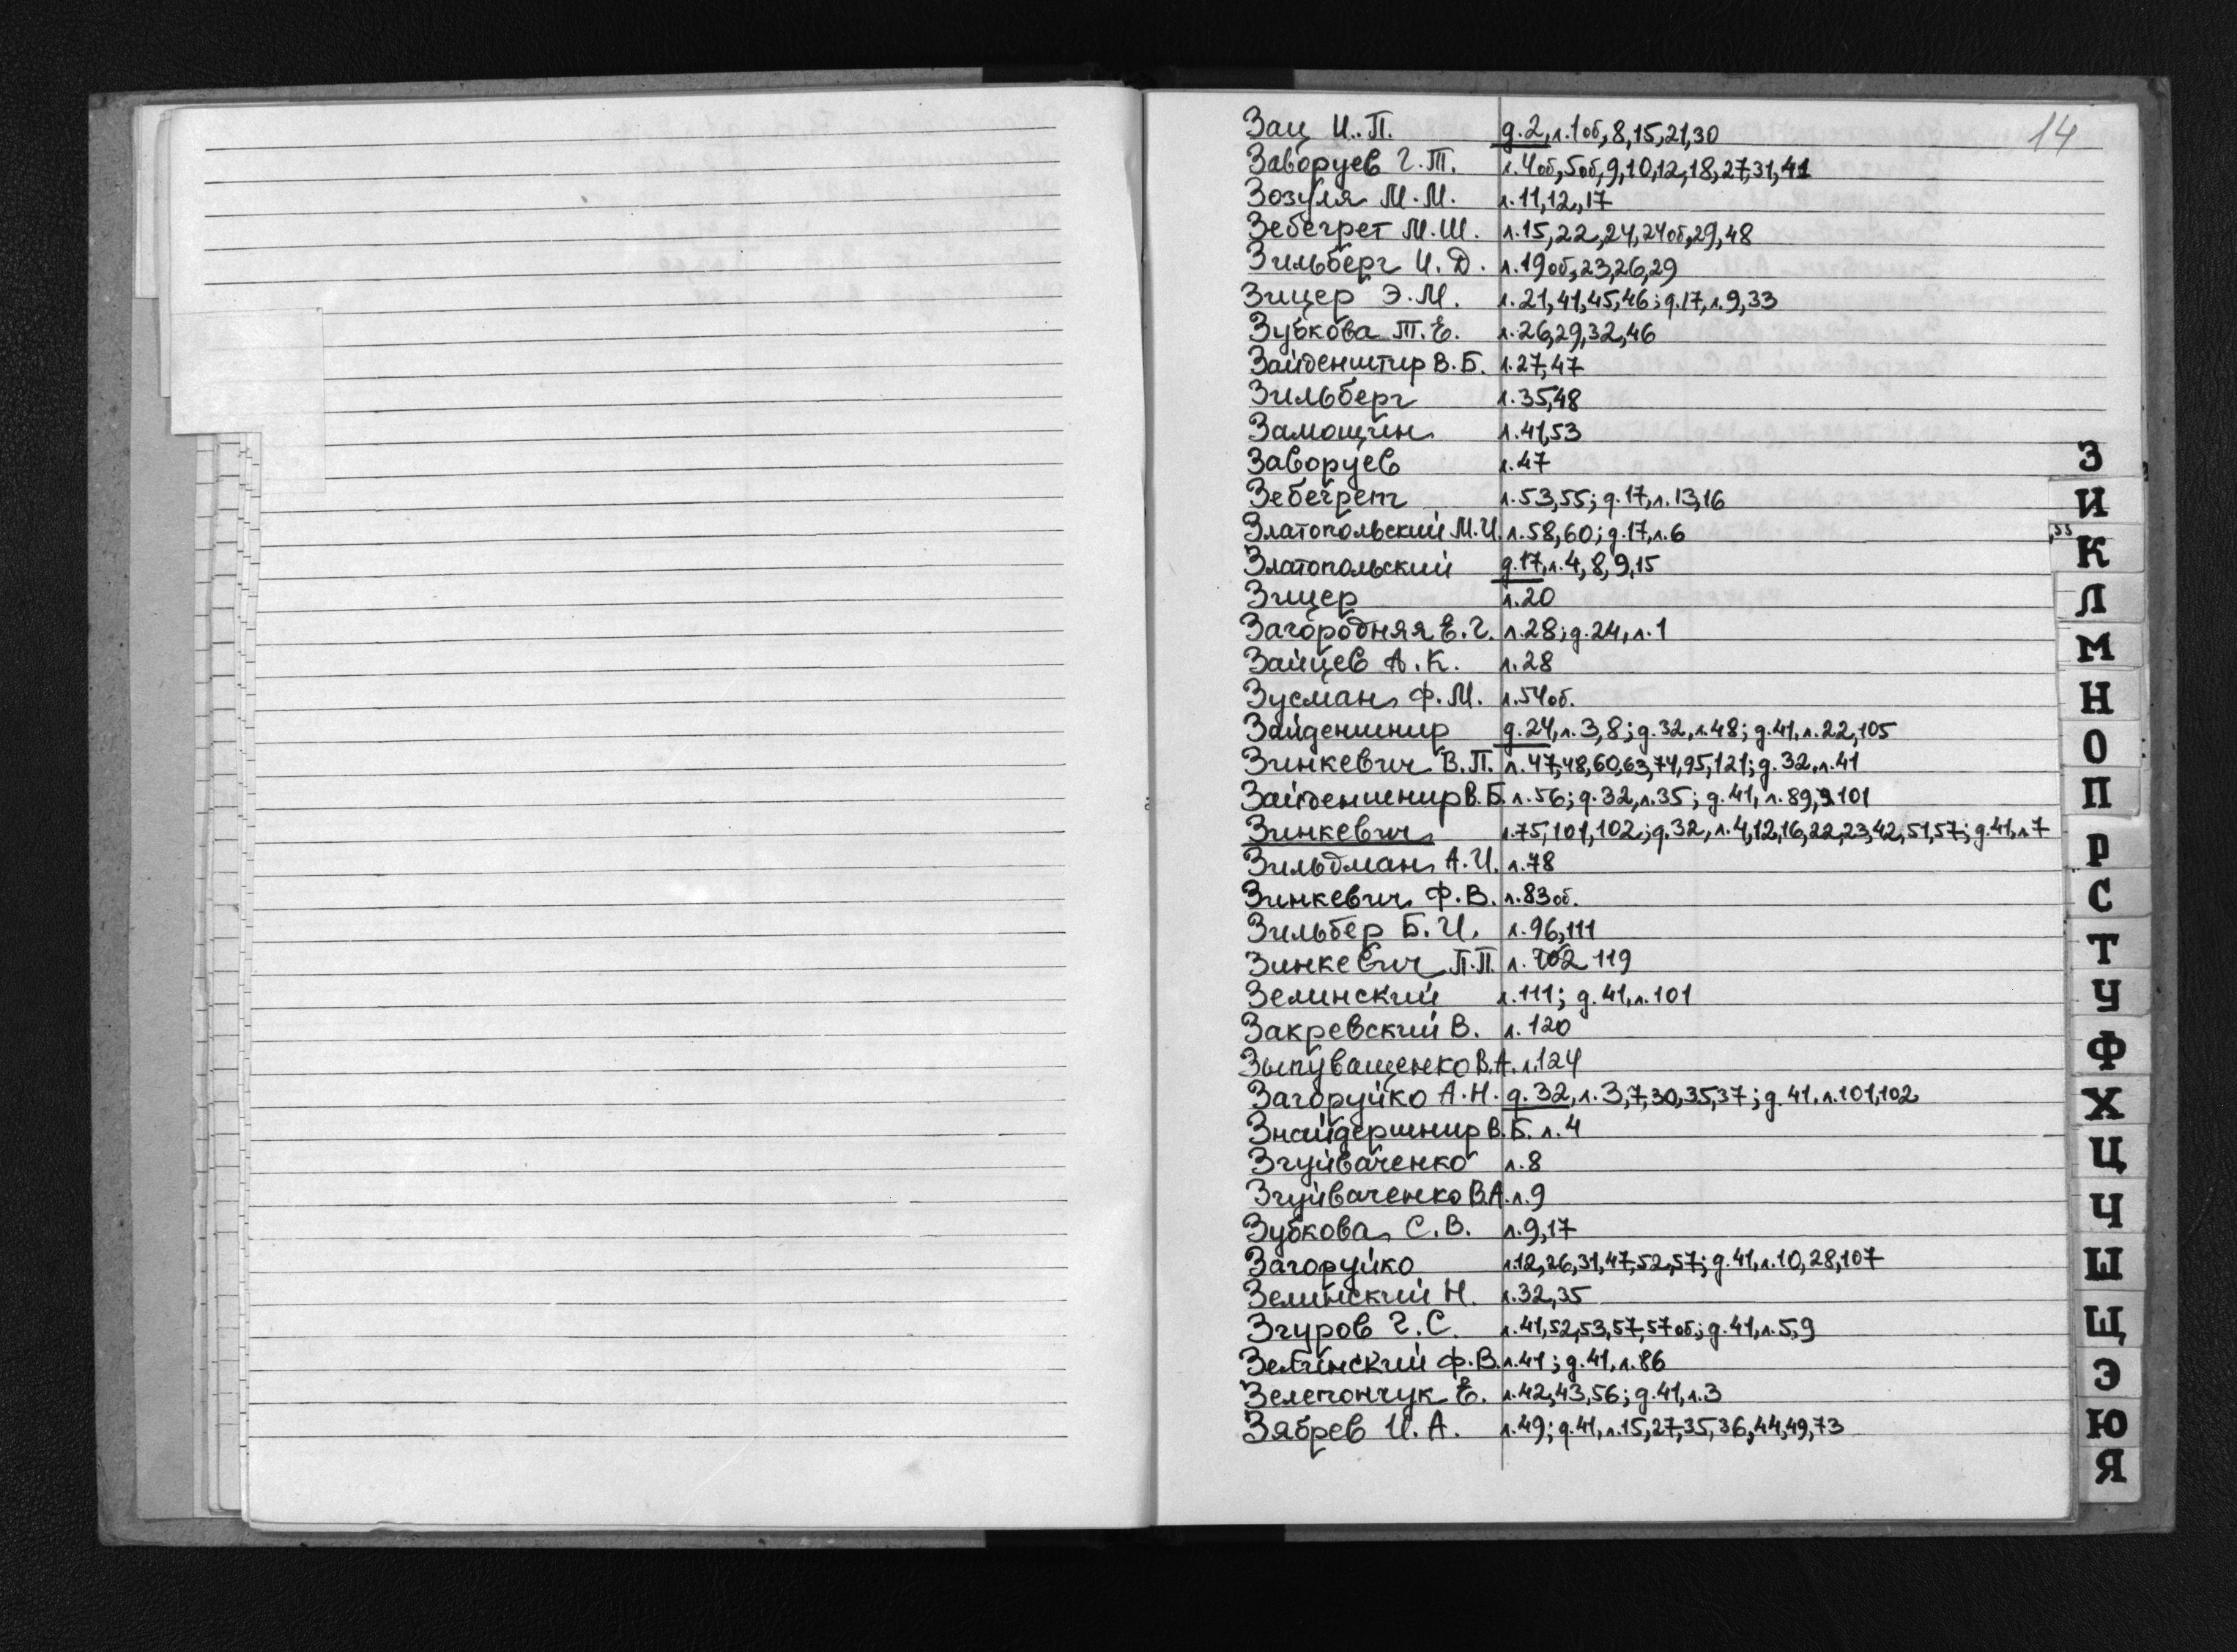 14
Зац И.П. д.2, л.1об,8,15,21,30
Заворуев Г.Т. л.4об,5об,9,10,12,18,27,31,41
Зозуля М.М. л.11,12,17
Зебегрет М.Ш. л.15,22,24,24об,29,48
Зильберг И.Д. л.19об,23,26,29
Зицер Э.М. л.21,41,45,46; д.17, л.9,33
Зубкова Т.Е. л.26,29,32,46
Зайденштир В.Б. л.27,47
Зильберг л.35,48
Замощин л.41,53
Заворуев л.47
Зебегрет л.53,55; д.17, л.13,16
Златопольский М.И. л.58,60; д.17, л.6
Златопольский д.17, л.4,8,9,15
Зицер л.20
Загородняя Е.Г. л.28; д.24, л.1
Зайцев А.К. л.28
Зусман Ф.М. л.54об.
Зайденшнир д.24, л.3,8; д.32, л.48; д.41, л.22,105
Зинкевич В.П. л.47,48,60,63,74,95,121; д.32, л.41
Зайденшнир В.Б. л.56; д.32, л.35; д.41, л.89, 101
Зинкевич л.75,101,102; д.32, л.4,12,16,22,23,42,51,57; д.41, л.7
Зильдман А.И. л.78
Зинкевич Ф.В. л.83об.
Зильбер Б.И. л.96,111
Зинкевич П.П. л.102 119
Зелинский л.111; д.41, л.101
Закревский В. л.120
Зыпуващенко В.А. л.124
Загоруйко А.Н. д.32, л.3,7,30,35,37; д.41, л.101,102
Знайдершнир В.Б. л.4
Згуйваченко л.8
Згуйваченко В.А. л.9
Зубкова С.В. л.9,17
Загоруйко л.12,26,31,47,52,57; д.41, л.10,28,107
Зелинский Н. л.32,35
Згуров Г.С. л.41,52,53,57,57об; д.41, л.5,9
Зелинский Ф.В. л.41; д.41, л.86
Зелепончук Е. л.42,43,56; д.41, л.3
Зябрев И.А. л.49; д.41, л.15,27,35,36,44,49,73
З
И
К
Л
М
Н
О
П
Р
С
Т
У
Ф
Х
Ц
Ч
Ш
Щ
Э
Ю
Я